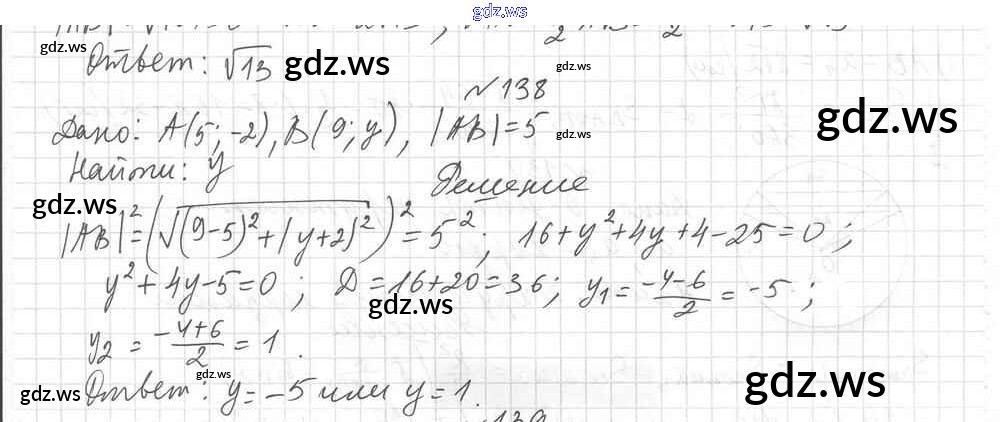 gdz.ws
Ответ: √13
№138
Дано: A(5; -2), B(9; y), |AB|=5
Найти: y
Решение
|AB|²=(√((9-5)²+(y+2)²))²=5²; 16+y²+4y+4-25=0;
y²+4y-5=0; D=16+20=36; y₁=(-4-6)/2=-5;
y₂=(-4+6)/2=1.
Ответ: y=-5 или y=1.
139
gdz.ws
gdz.ws
gdz.ws
gdz.ws
gdz.ws
gdz.ws
gdz.ws
gdz.ws
gdz.ws
gdz.ws